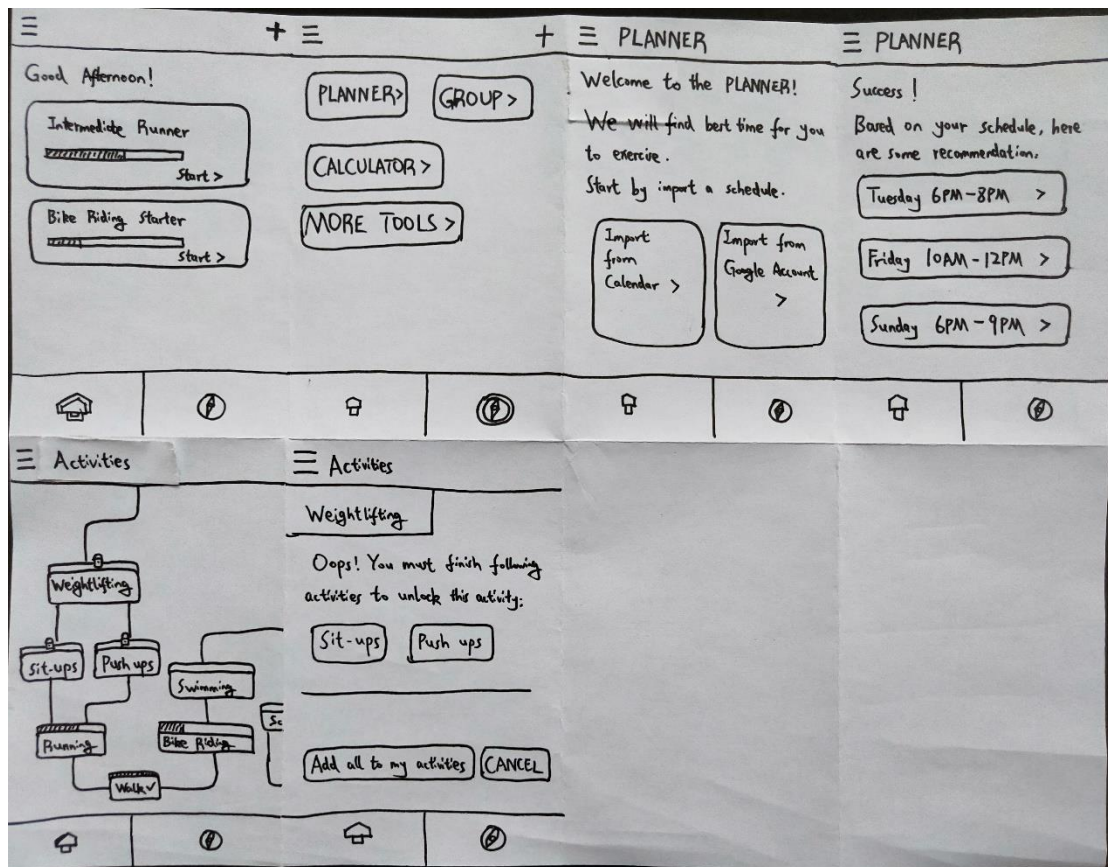 Good Afternoon!
Intermediate Runner
Start >
Bike Riding Starter
Start >
PLANNER>
GROUP >
CALCULATOR >
MORE TOOLS >
PLANNER
Welcome to the PLANNER!
We will find best time for you
to exercise.
Start by import a schedule.
Import
from
Calendar >
Import from
Google Account
>
PLANNER
Success!
Based on your schedule, here
are some recommendation.
Tuesday 6PM-8PM >
Friday 10AM-12PM >
Sunday 6PM-9PM >
Activities
Weightlifting
Sit-ups
Push ups
Swimming
Running
Bike Riding
Sc
Walk✓
Activities
Weightlifting
Oops! You must finish following
activities to unlock this activity:
Sit-ups
Push ups
Add all to my activities
CANCEL